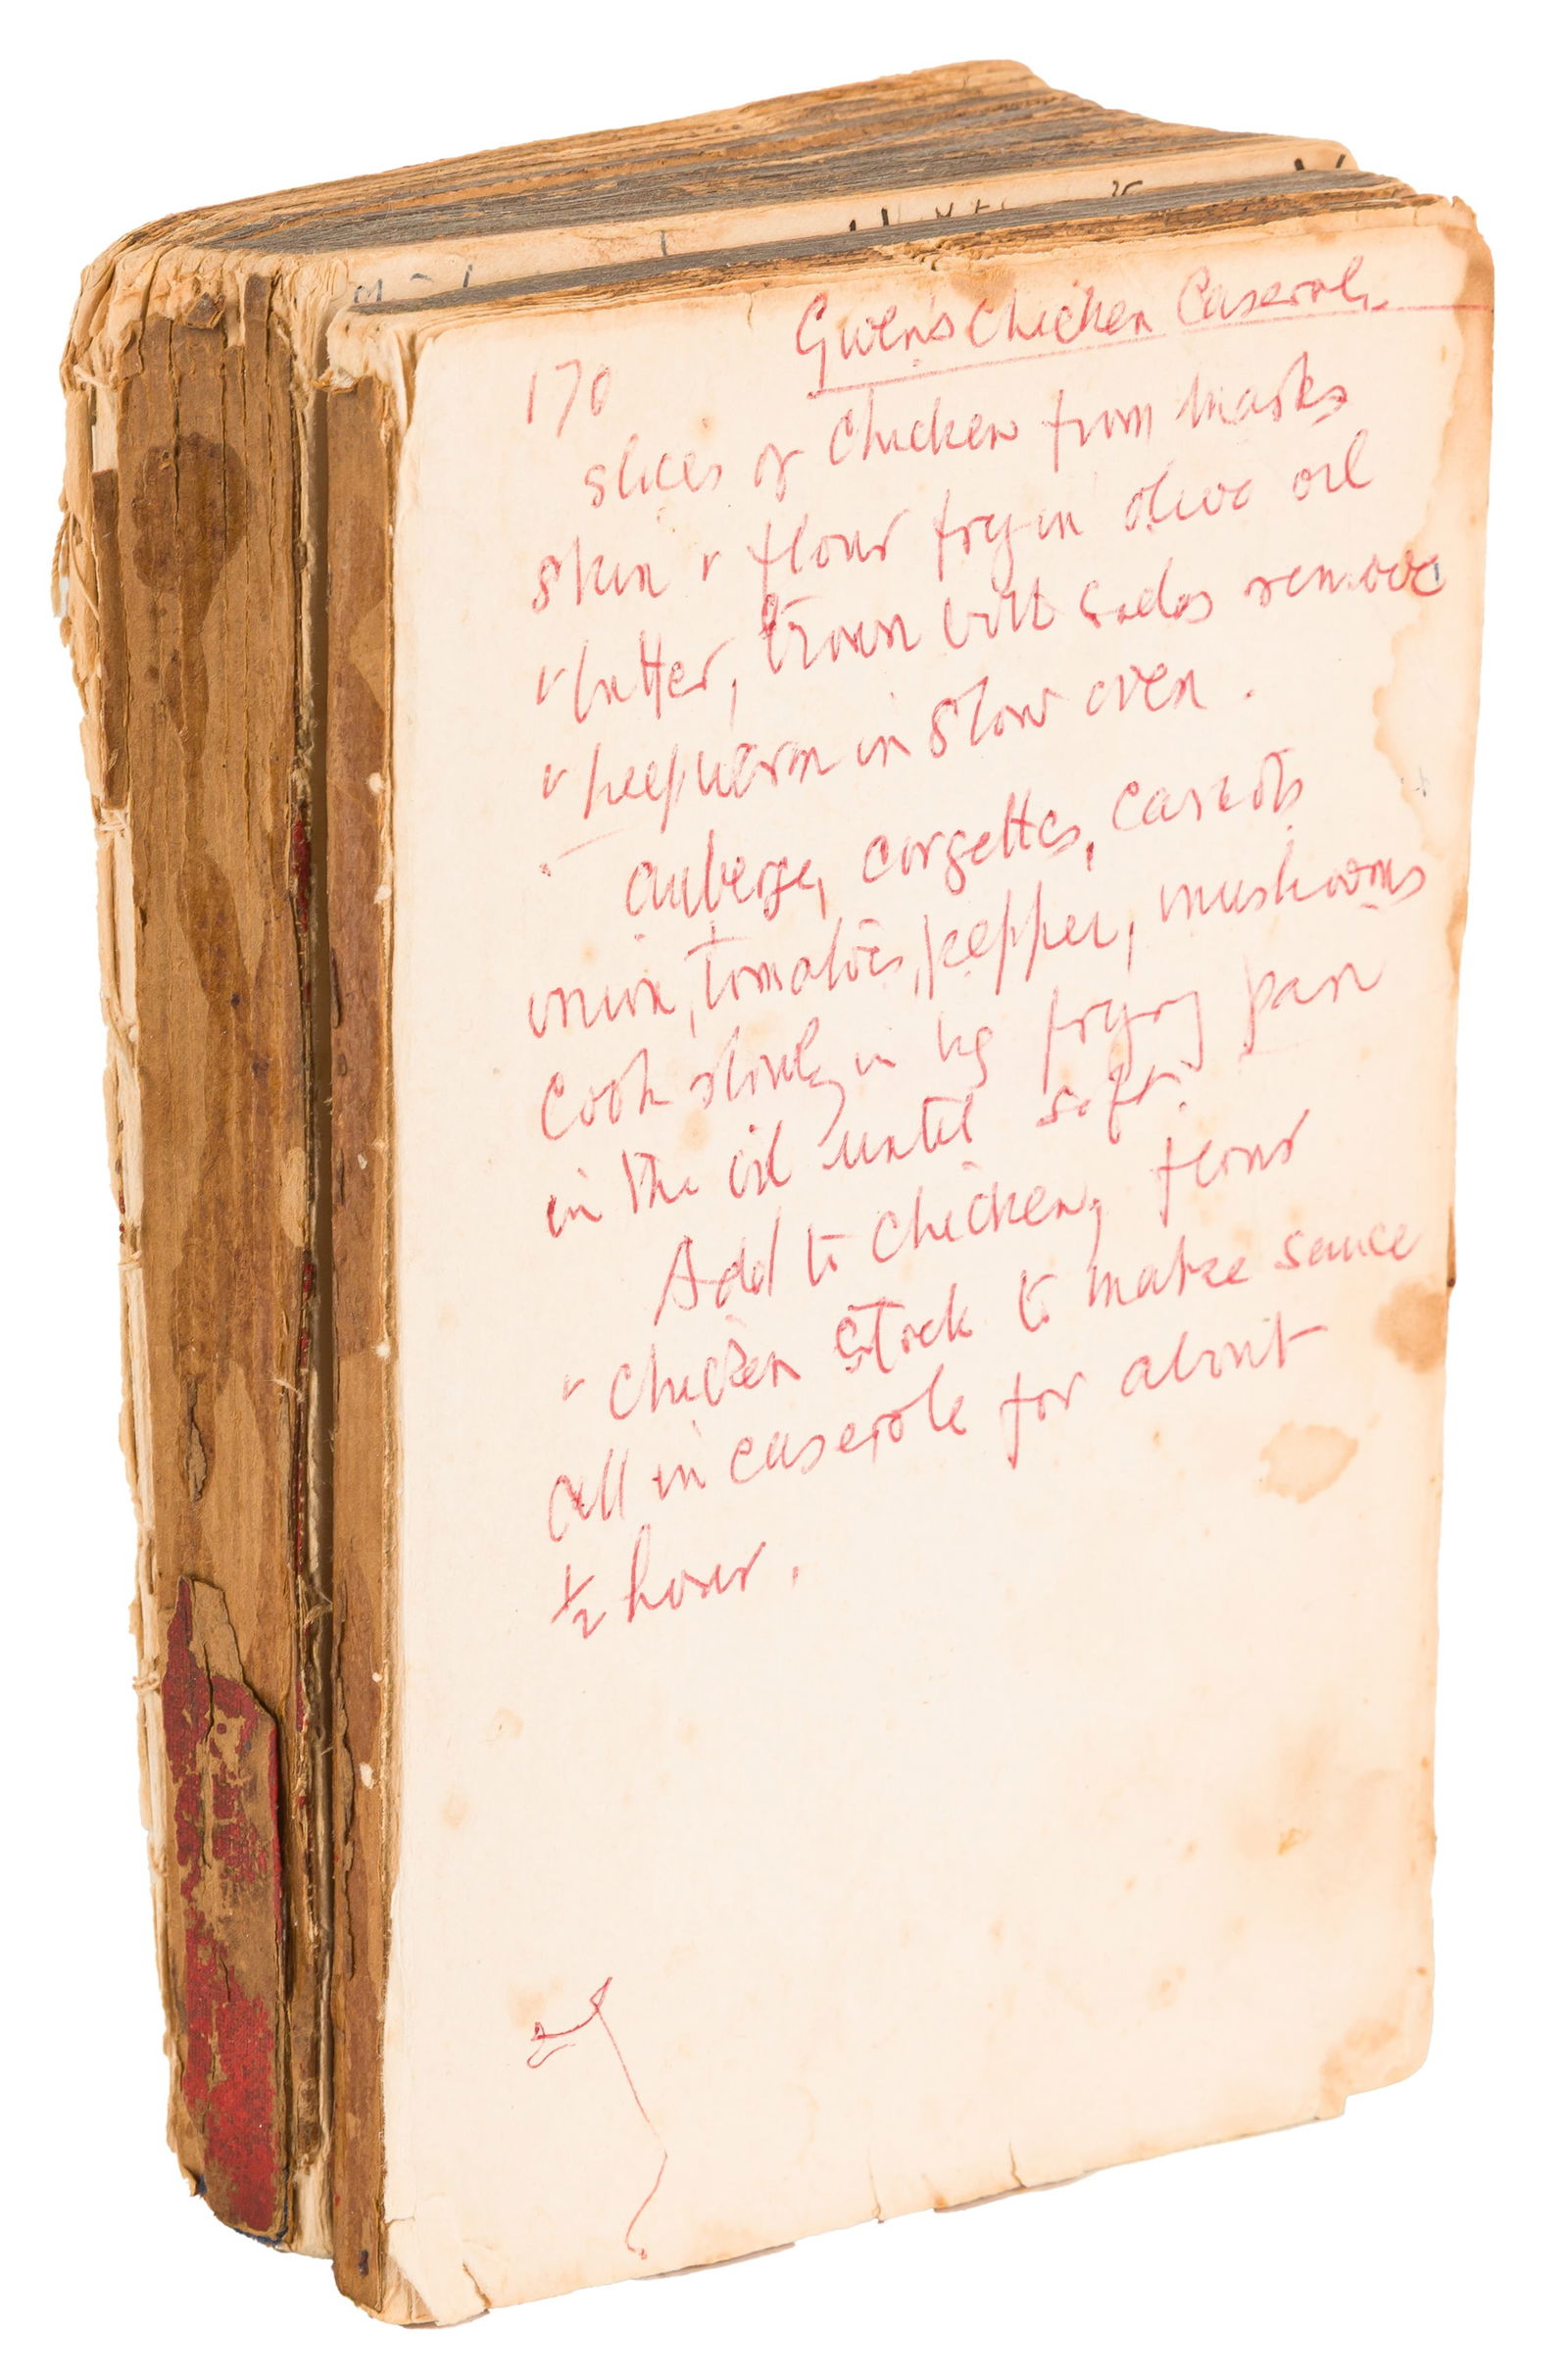 Gwen's Chicken Caserole
170
slices of chicken from Marks
skin + flour fry in olive oil
+ butter, brown both sides remove
+ keep warm in slow oven.
auberge, corgettes, carrots
onion, tomatoes, pepper, mushrooms
cook slowly in big frying pan
in the oil until soft.
Add to chicken, flour
+ chicken stock to make sauce
all in caserole for about
½ hour.